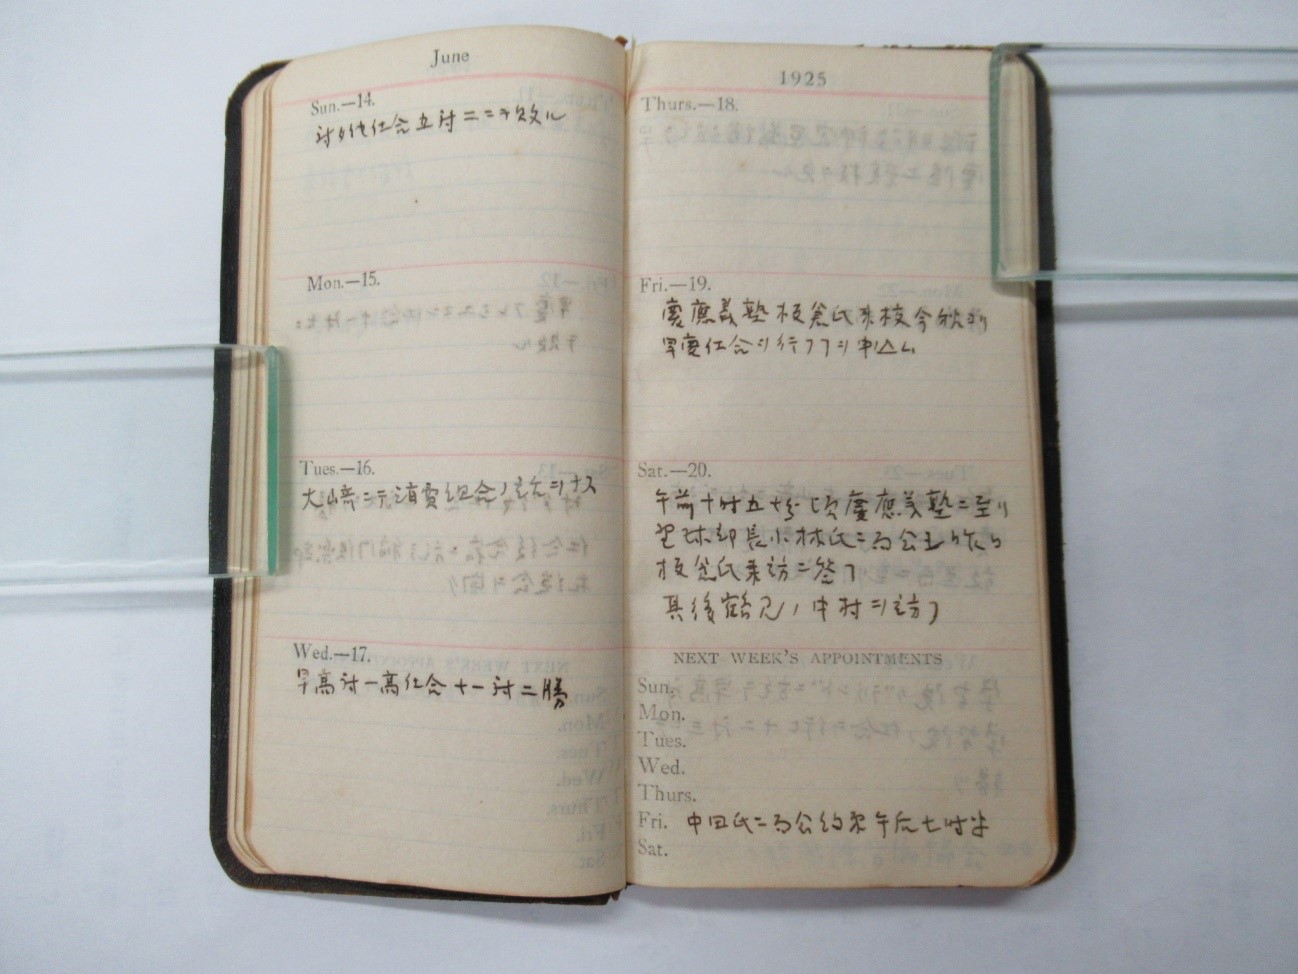 June
Sun.—14.
対
仕合五対二ニテ敗ル
Mon.—15.
Tues.—16.
大山
ニテ消費組合ノ
ヲナス
Wed.—17.
早高対一高仕合十一対二勝
1925
Thurs.—18.
Fri.—19.
慶應義塾板倉氏来校今秋
早慶仕合ヲ行フヿヲ申込ム
Sat.—20.
午前十時五十分頃慶應義塾ニ至リ
野球部長小林氏ニ面会シ
板倉氏来訪ニ答フ
其後鶴見ノ中村ヲ訪フ
NEXT WEEK'S APPOINTMENTS
Sun.
Mon.
Tues.
Wed.
Thurs.
Fri. 中田氏ニ面会約束午后七時半
Sat.